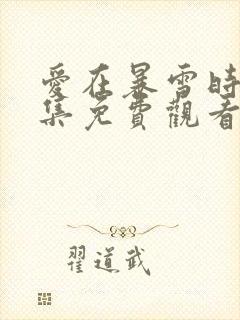 愛在暴雪時
集免費觀看
翟道武